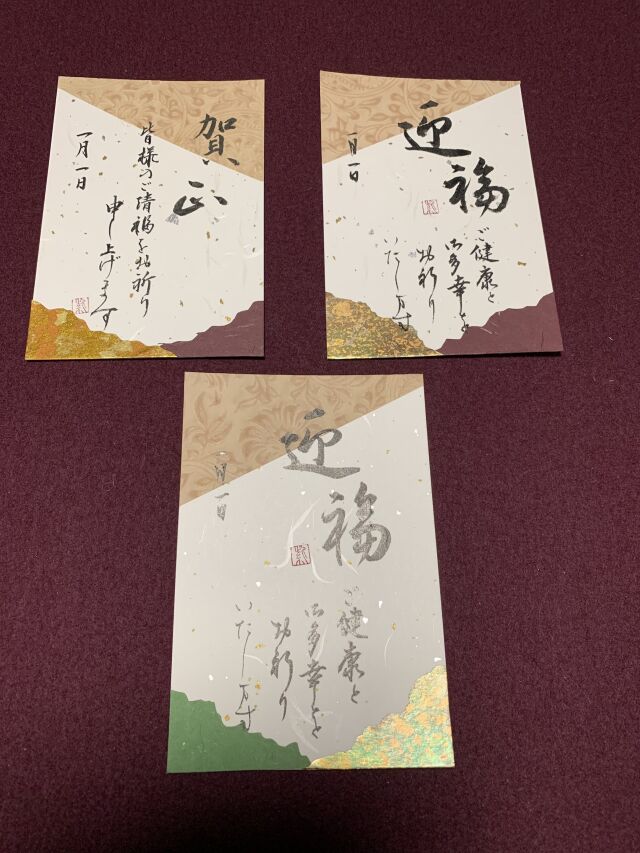 賀正
皆様のご清福をお祈り
申し上げます
一月一日
迎
福
ご健康と
御多幸を
お祈り
いたします
一月一日
迎
福
ご健康と
御多幸を
お祈り
いたします
一月一日